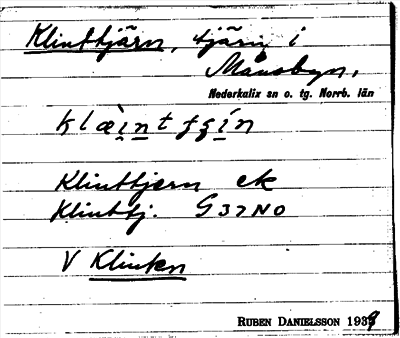 Klinttjärn, tjärn i
Månsbyn,
Nederkalix sn o. tg. Norrb. län
Klinttjern ek
Klinttj. G 37 NO
V Klinten
RUBEN DANIELSSON 1939